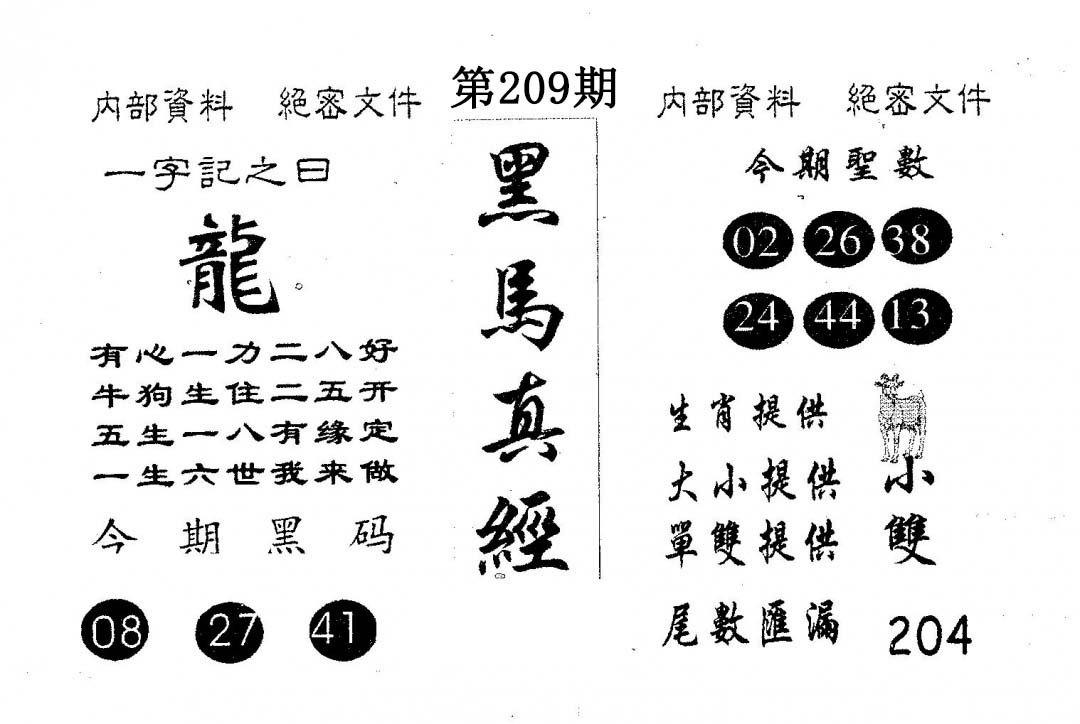 第209期
内部資料 絕密文件
一字記之曰
龍
有心一力二八好
牛狗生住二五开
五生一八有缘定
一生六世我来做
今期黑码
08 27 41
黑馬真經
内部資料 絕密文件
今期聖數
02 26 38
24 44 13
生肖提供
大小提供 小
單雙提供 雙
尾數匯漏 204